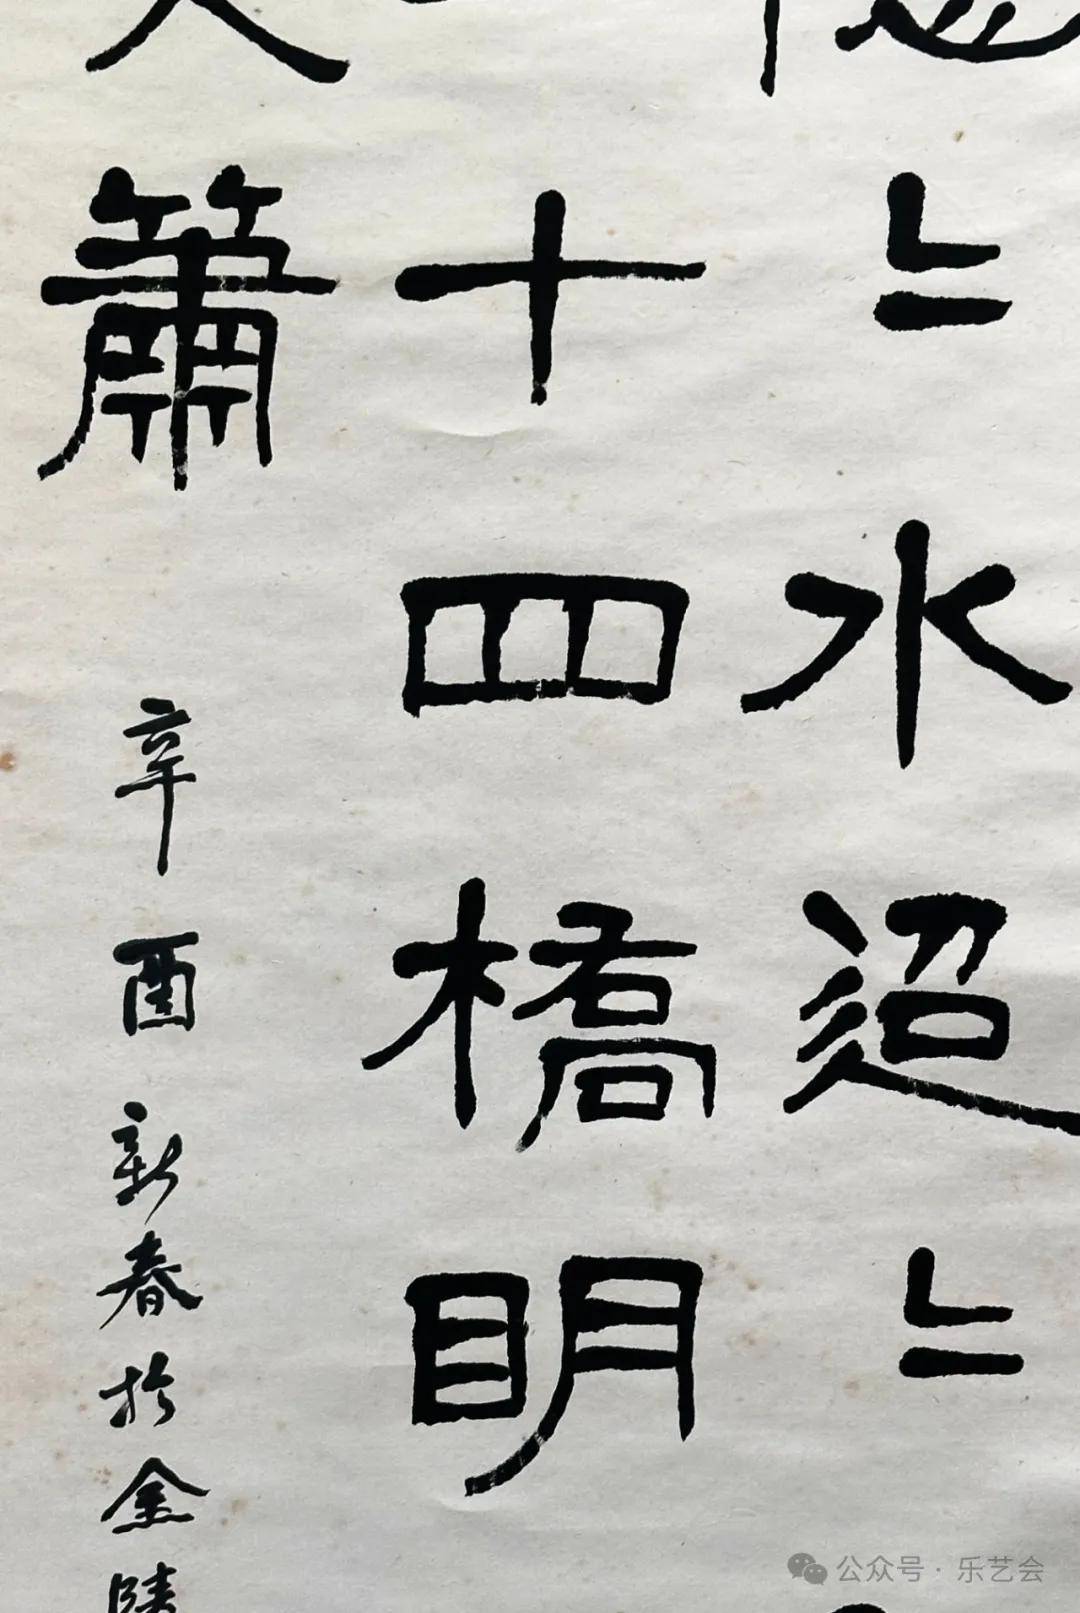 隱〻水迢〻
十四橋明
吹簫
辛酉新春於金陵
公众号·乐艺会